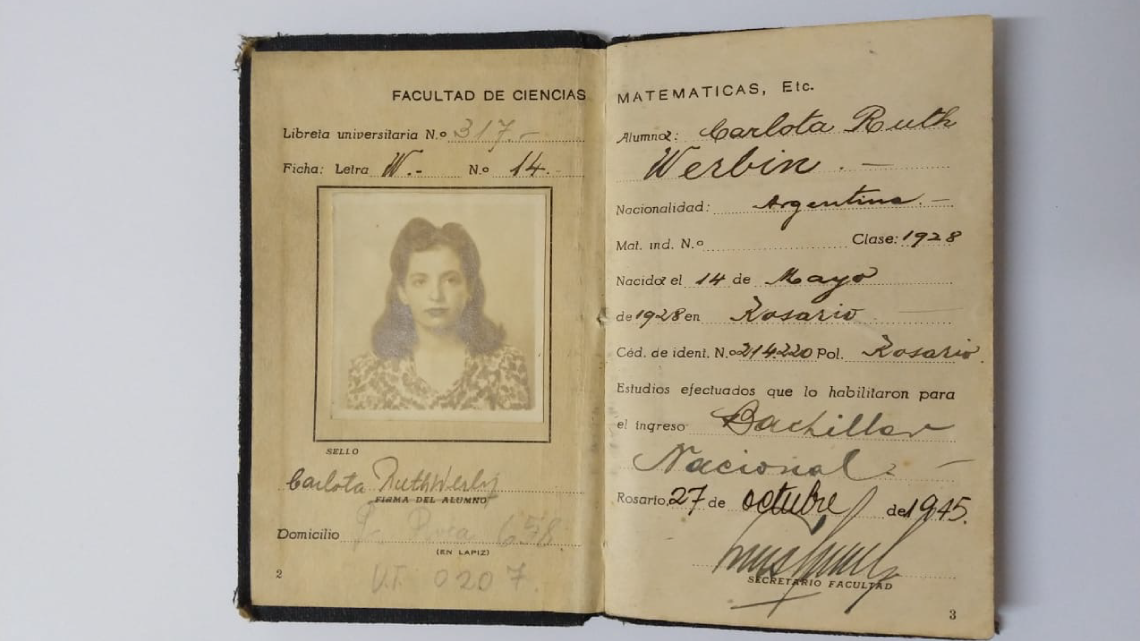 FACULTAD DE CIENCIAS
Libreta universitaria N.o 317.-
Ficha: Letra W.- N.o 14.-
SELLO
Carlota Ruth Werbin
FIRMA DEL ALUMNO
Domicilio 658
(EN LAPIZ)
U.T. 0207
2
MATEMATICAS, Etc.
Alumna: Carlota Ruth
Werbin.-
Nacionalidad: Argentina.-
Mat. ind. N.o Clase: 1928
Nacida el 14 de Mayo
de 1928 en Rosario
Céd. de ident. N.o 214220 Pol. Rosario.
Estudios efectuados que lo habilitaron para
el ingreso Bachiller
Nacional.-
Rosario, 27 de octubre de 1945.
SECRETARIO FACULTAD
3